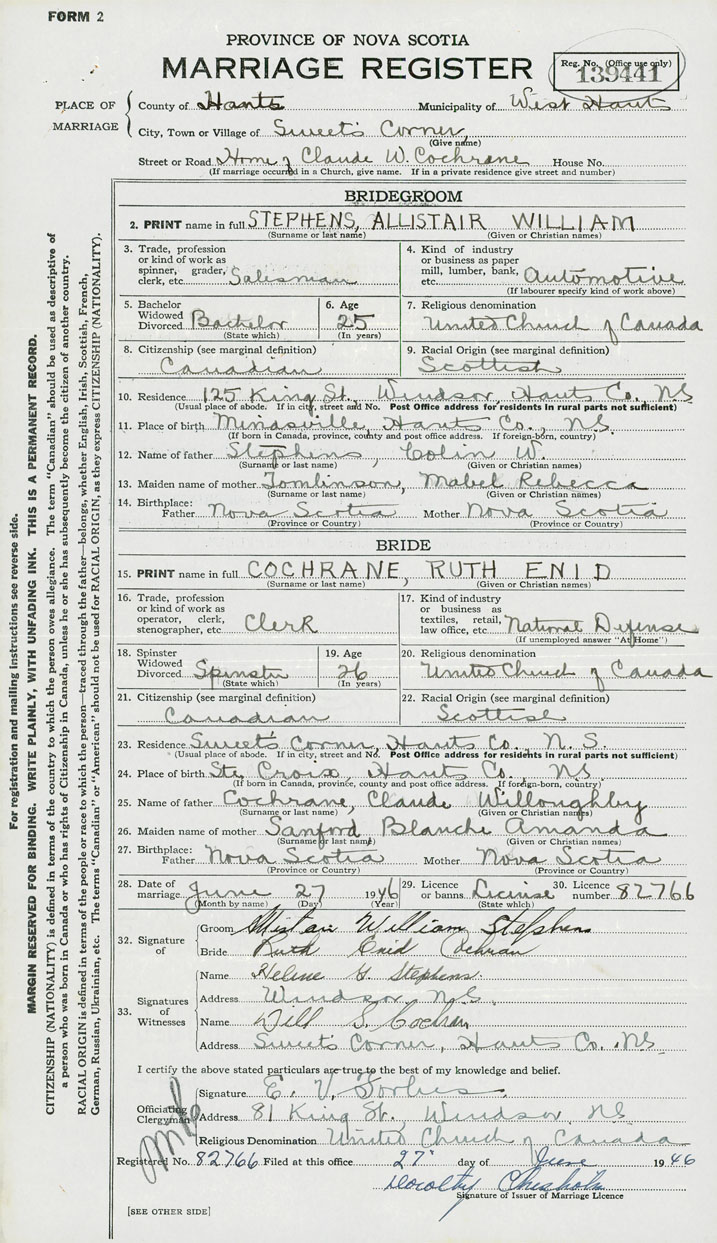 FORM 2
PROVINCE OF NOVA SCOTIA
MARRIAGE REGISTER
Reg. No. (Office use only)
139441
PLACE OF MARRIAGE
County of Hants Municipality of West Hants
City, Town or Village of Sweet's Corner
(Give name)
Street or Road Home of Claude W. Cochrane House No.
(If marriage occurred in a Church, give name. If in a private residence give street and number)
BRIDEGROOM
2. PRINT name in full STEPHENS, ALLISTAIR WILLIAM
(Surname or last name) (Given or Christian names)
3. Trade, profession or kind of work as spinner, grader, clerk, etc. Salesman
4. Kind of industry or business as paper mill, lumber, bank, etc. Automotive
(If labourer specify kind of work above)
5. Bachelor Widowed Divorced Bachelor
(State which)
6. Age 25
(In years)
7. Religious denomination
United Church of Canada
8. Citizenship (see marginal definition)
Canadian
9. Racial Origin (see marginal definition)
Scottish
10. Residence 125 King St., Windsor, Hants Co., NS
(Usual place of abode. If in city, street and No. Post Office address for residents in rural parts not sufficient)
11. Place of birth Minasville, Hants Co., N.S.
(If born in Canada, province, county and post office address. If foreign-born, country)
12. Name of father Stephens, Colin W.
(Surname or last name) (Given or Christian names)
13. Maiden name of mother Tomlinson, Mabel Rebecca
(Surname or last name) (Given or Christian names)
14. Birthplace: Father Nova Scotia Mother Nova Scotia
(Province or Country) (Province or Country)
BRIDE
15. PRINT name in full COCHRANE, RUTH ENID
(Surname or last name) (Given or Christian names)
16. Trade, profession or kind of work as operator, clerk, stenographer, etc. Clerk
17. Kind of industry or business as textiles, retail, law office, etc. National Defense
(If unemployed answer "At Home")
18. Spinster Widowed Divorced Spinster
(State which)
19. Age 26
(In years)
20. Religious denomination
United Church of Canada
21. Citizenship (see marginal definition)
Canadian
22. Racial Origin (see marginal definition)
Scottish
23. Residence Sweet's Corner, Hants Co., N.S.
(Usual place of abode. If in city, street and No. Post Office address for residents in rural parts not sufficient)
24. Place of birth Ste Croix, Hants Co. N.S.
(If born in Canada, province, county and post office address. If foreign-born, country)
25. Name of father Cochrane, Claude Willoughby
(Surname or last name) (Given or Christian names)
26. Maiden name of mother Sanford Blanche Amanda
(Surname or last name) (Given or Christian names)
27. Birthplace: Father Nova Scotia Mother Nova Scotia
(Province or Country) (Province or Country)
28. Date of marriage June 27 1946
(Month by name) (Day) (Year)
29. Licence or banns License
(State which)
30. Licence number 82766
32. Signature of
Groom Allistair William Stephens
Bride Ruth Enid Cochran
33. Signatures of Witnesses
Name Helene G. Stephens
Address Windsor N.S.
Name Will S. Cochran
Address Sweet's Corner, Hants Co., NS
I certify the above stated particulars are true to the best of my knowledge and belief.
Officiating Clergyman
Signature E. V. Forbes
Address 81 King St. Windsor NS
Religious Denomination United Church of Canada
Registered No. 82766 Filed at this office 27 day of June 1946
Dorothy Chisholm
Signature of Issuer of Marriage Licence
[SEE OTHER SIDE]
For registration and mailing instructions see reverse side.
MARGIN RESERVED FOR BINDING. WRITE PLAINLY, WITH UNFADING INK. THIS IS A PERMANENT RECORD.
CITIZENSHIP (NATIONALITY) is defined in terms of the country to which the person owes allegiance. The term "Canadian" should be used as descriptive of
a person who was born in Canada or who has rights of Citizenship in Canada, unless he or she has subsequently become the citizen of another country.
RACIAL ORIGIN is defined in terms of the people or race to which the person—traced through the father—belongs, whether English, Irish, Scottish, French,
German, Russian, Ukrainian, etc. The terms "Canadian" or "American" should not be used for RACIAL ORIGIN, as they express CITIZENSHIP (NATIONALITY).